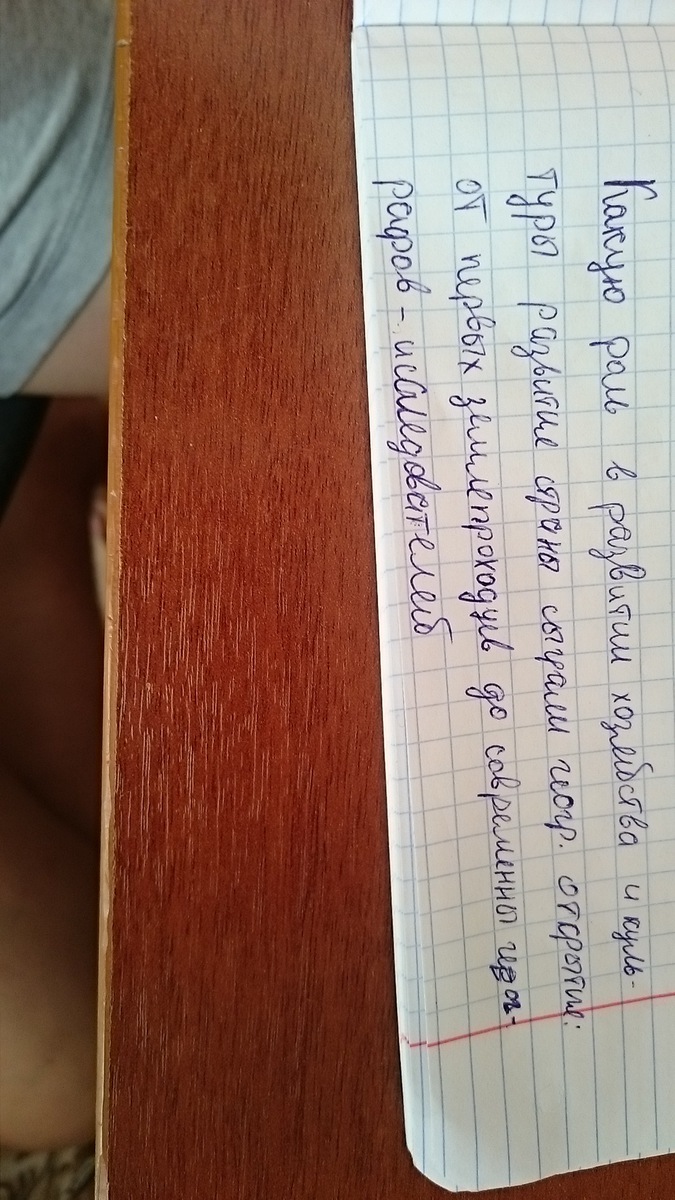 Какую роль в развитии хозяйства и куль-
туры развитие страны сыграли геогр. открытие:
от первых землепроходцев до современны геог-
рафов - исследователей